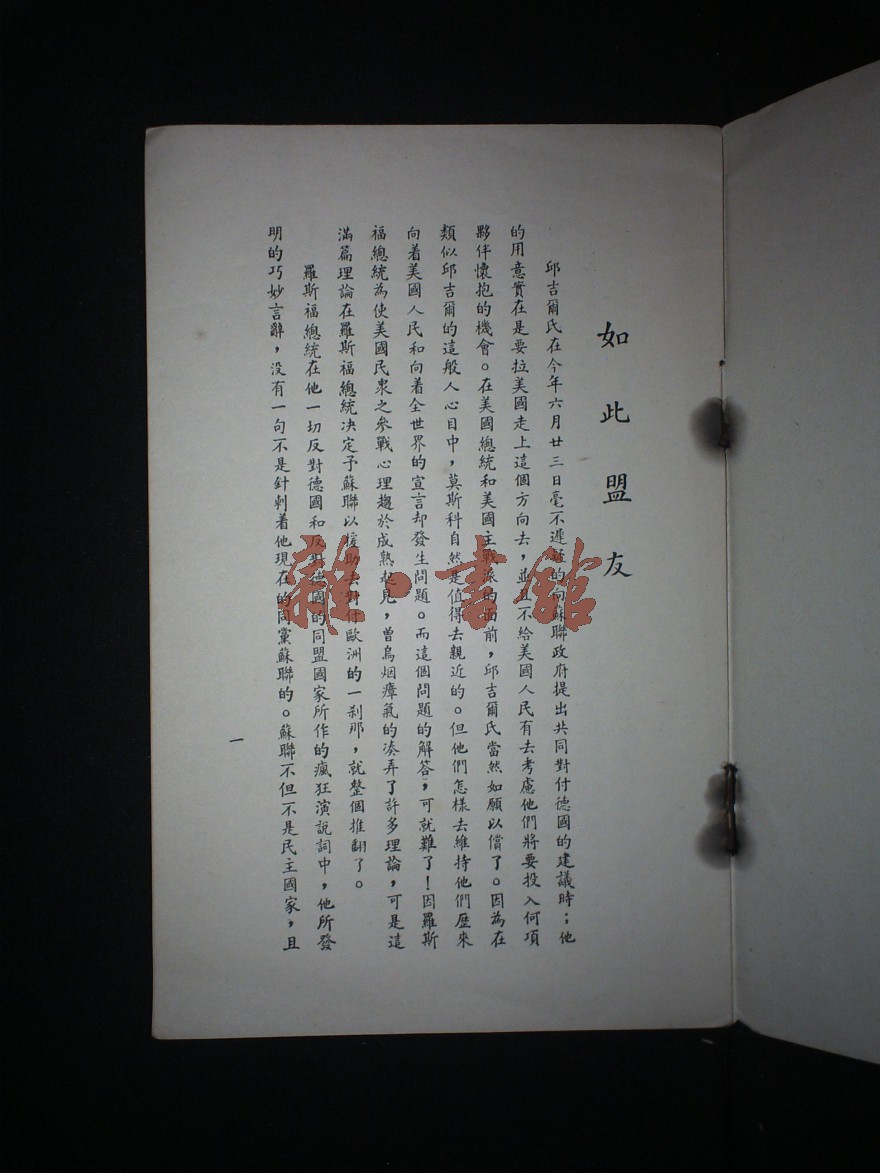 如此盟友
邱吉爾氏在今年六月廿三日毫不遲疑的向蘇聯政府提出共同對付德國的建議時；他
的用意實在是要拉美國走上這個方向去，並且不給美國人民有去考慮他們將要投入何項
夥伴懷抱的機會。在美國總統和美國主戰派的面前，邱吉爾氏當然如願以償了。因為在
類似邱吉爾的這般人心目中，莫斯科自然是值得去親近的。但他們怎樣去維持他們歷來
向着美國人民和向着全世界的宣言却發生問題。而這個問題的解答，可就難了！因羅斯
福總統為使美國民衆之參戰心理趨於成熟起見，曾烏烟瘴氣的湊弄了許多理論，可是這
滿篇理論在羅斯福總統决定予蘇聯以援助去對付歐洲的一刹那，就整個推翻了。
羅斯福總統在他一切反對德國和反對德國的同盟國家所作的瘋狂演說詞中，他所發
明的巧妙言辭，没有一句不是針刺着他現在的同黨蘇聯的。蘇聯不但不是民主國家，且
一
雜·書館